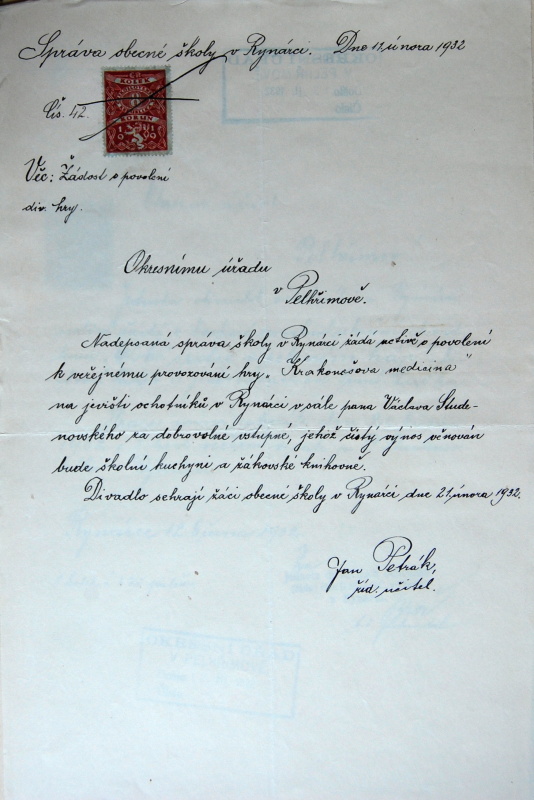 Správa obecné školy v Rynárci. Dne 12. února 1932
KOLEK
8
KORUN
1919
Čís. 42.
Věc: Žádost o povolení
div. hry.
Okresnímu úřadu
v Pelhřimově.
Nadepsaná správa školy v Rynárci žádá uctivě o povolení
k veřejnému provozování hry „Krakonošova medicina"
na jevišti ochotníků v Rynárci v sále pana Václava Stude-
novského za dobrovolné vstupné, jehož čistý výnos věnován
bude školní kuchyni a žákovské knihovně.
Divadlo sehrají žáci obecné školy v Rynárci dne 21. února 1932.
Jan Petrák,
říd. učitel.